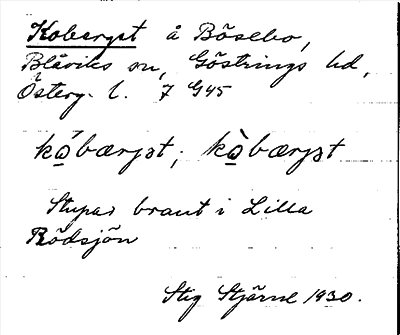 Koberget å Bösebo,
Blåviks sn, Göstrings hd,
Österg. l. 7 G45
kó̱bærjət; kò̱bærjət
Stupar brant i Lilla
Rödsjön
Stig Stjärne 1930.